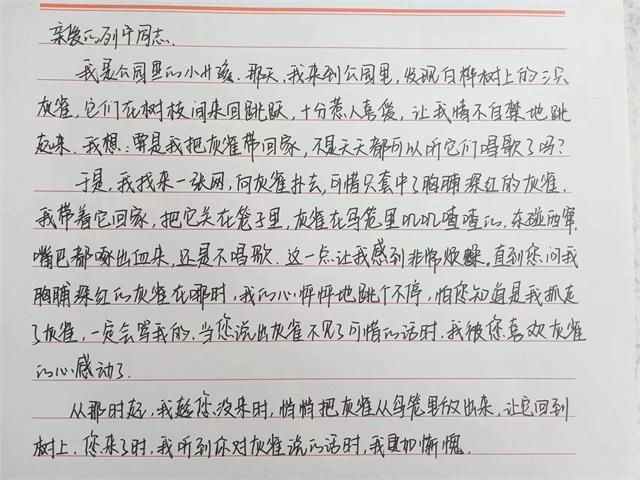 亲爱的列宁同志.
我是公园里的小男孩.那天,我来到公园里,发现白桦树上的三只
灰雀,它们在树枝间来回跳跃,十分惹人喜爱,让我情不自禁地跳
起来.我想:要是我把灰雀带回家,不是天天都可以听它们唱歌了吗?
于是,我找来一张网,向灰雀扑去,可惜只套中了胸脯深红的灰雀.
我带着它回家,把它关在笼子里,灰雀在鸟笼里叽叽喳喳的,东碰西窜,
嘴巴都啄出血来,还是不唱歌.这一点让我感到非常烦躁.直到您问我
胸脯深红的灰雀在哪时,我的心怦怦地跳个不停,怕您知道是我抓走
了灰雀,一定会骂我的.当您说出灰雀不见了可惜的话时.我被您喜欢灰雀
的心感动了.
从那时起,我趁您没来时,悄悄把灰雀从鸟笼里放出来,让它回到
树上.您来了时,我听到你对灰雀说的话时,我更加惭愧.